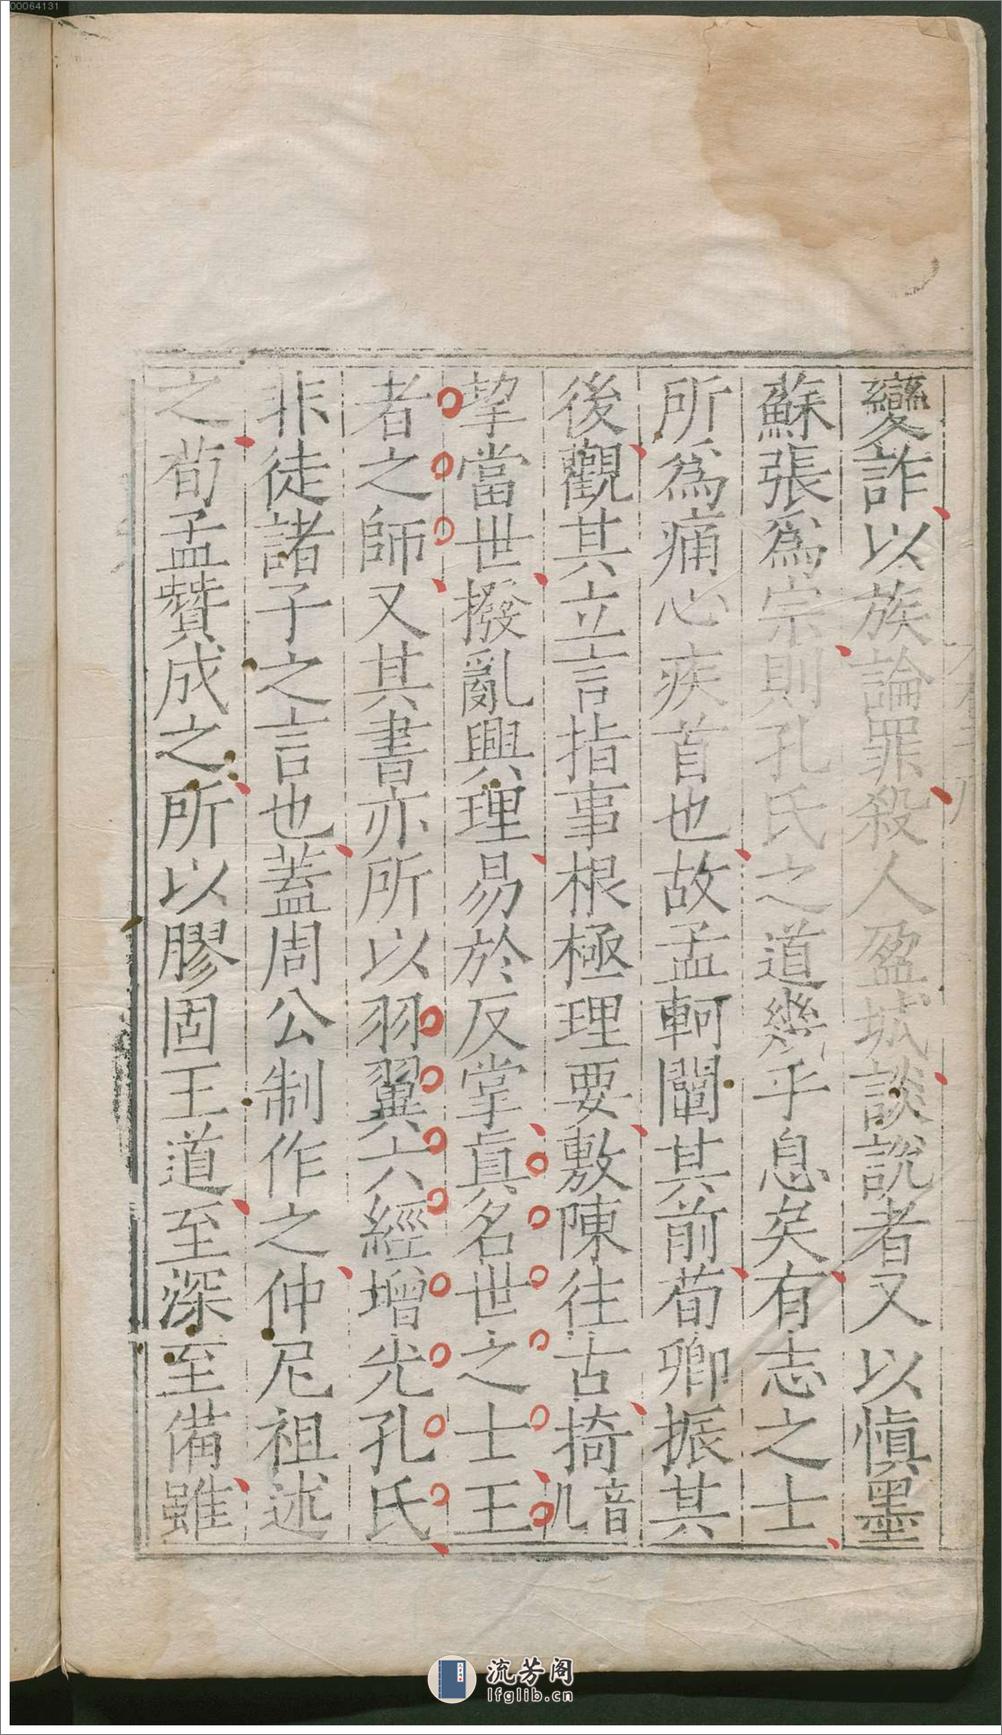 變詐以族論罪殺人盈城談說者又以愼墨
蘇張爲宗則孔氏之道幾乎息矣有志之士
所爲痛心疾首也故孟軻闡其前荀卿振其
後觀其立言指事根極理要敷陳往古掎音几
挈當世撥亂興理易於反掌眞名世之士王
者之師又其書亦所以羽翼六經增光孔氏
非徒諸子之言也蓋周公制作之仲尼祖述
之荀孟贊成之所以膠固王道至深至備雖
00064131
流芳阁
lfglib.cn